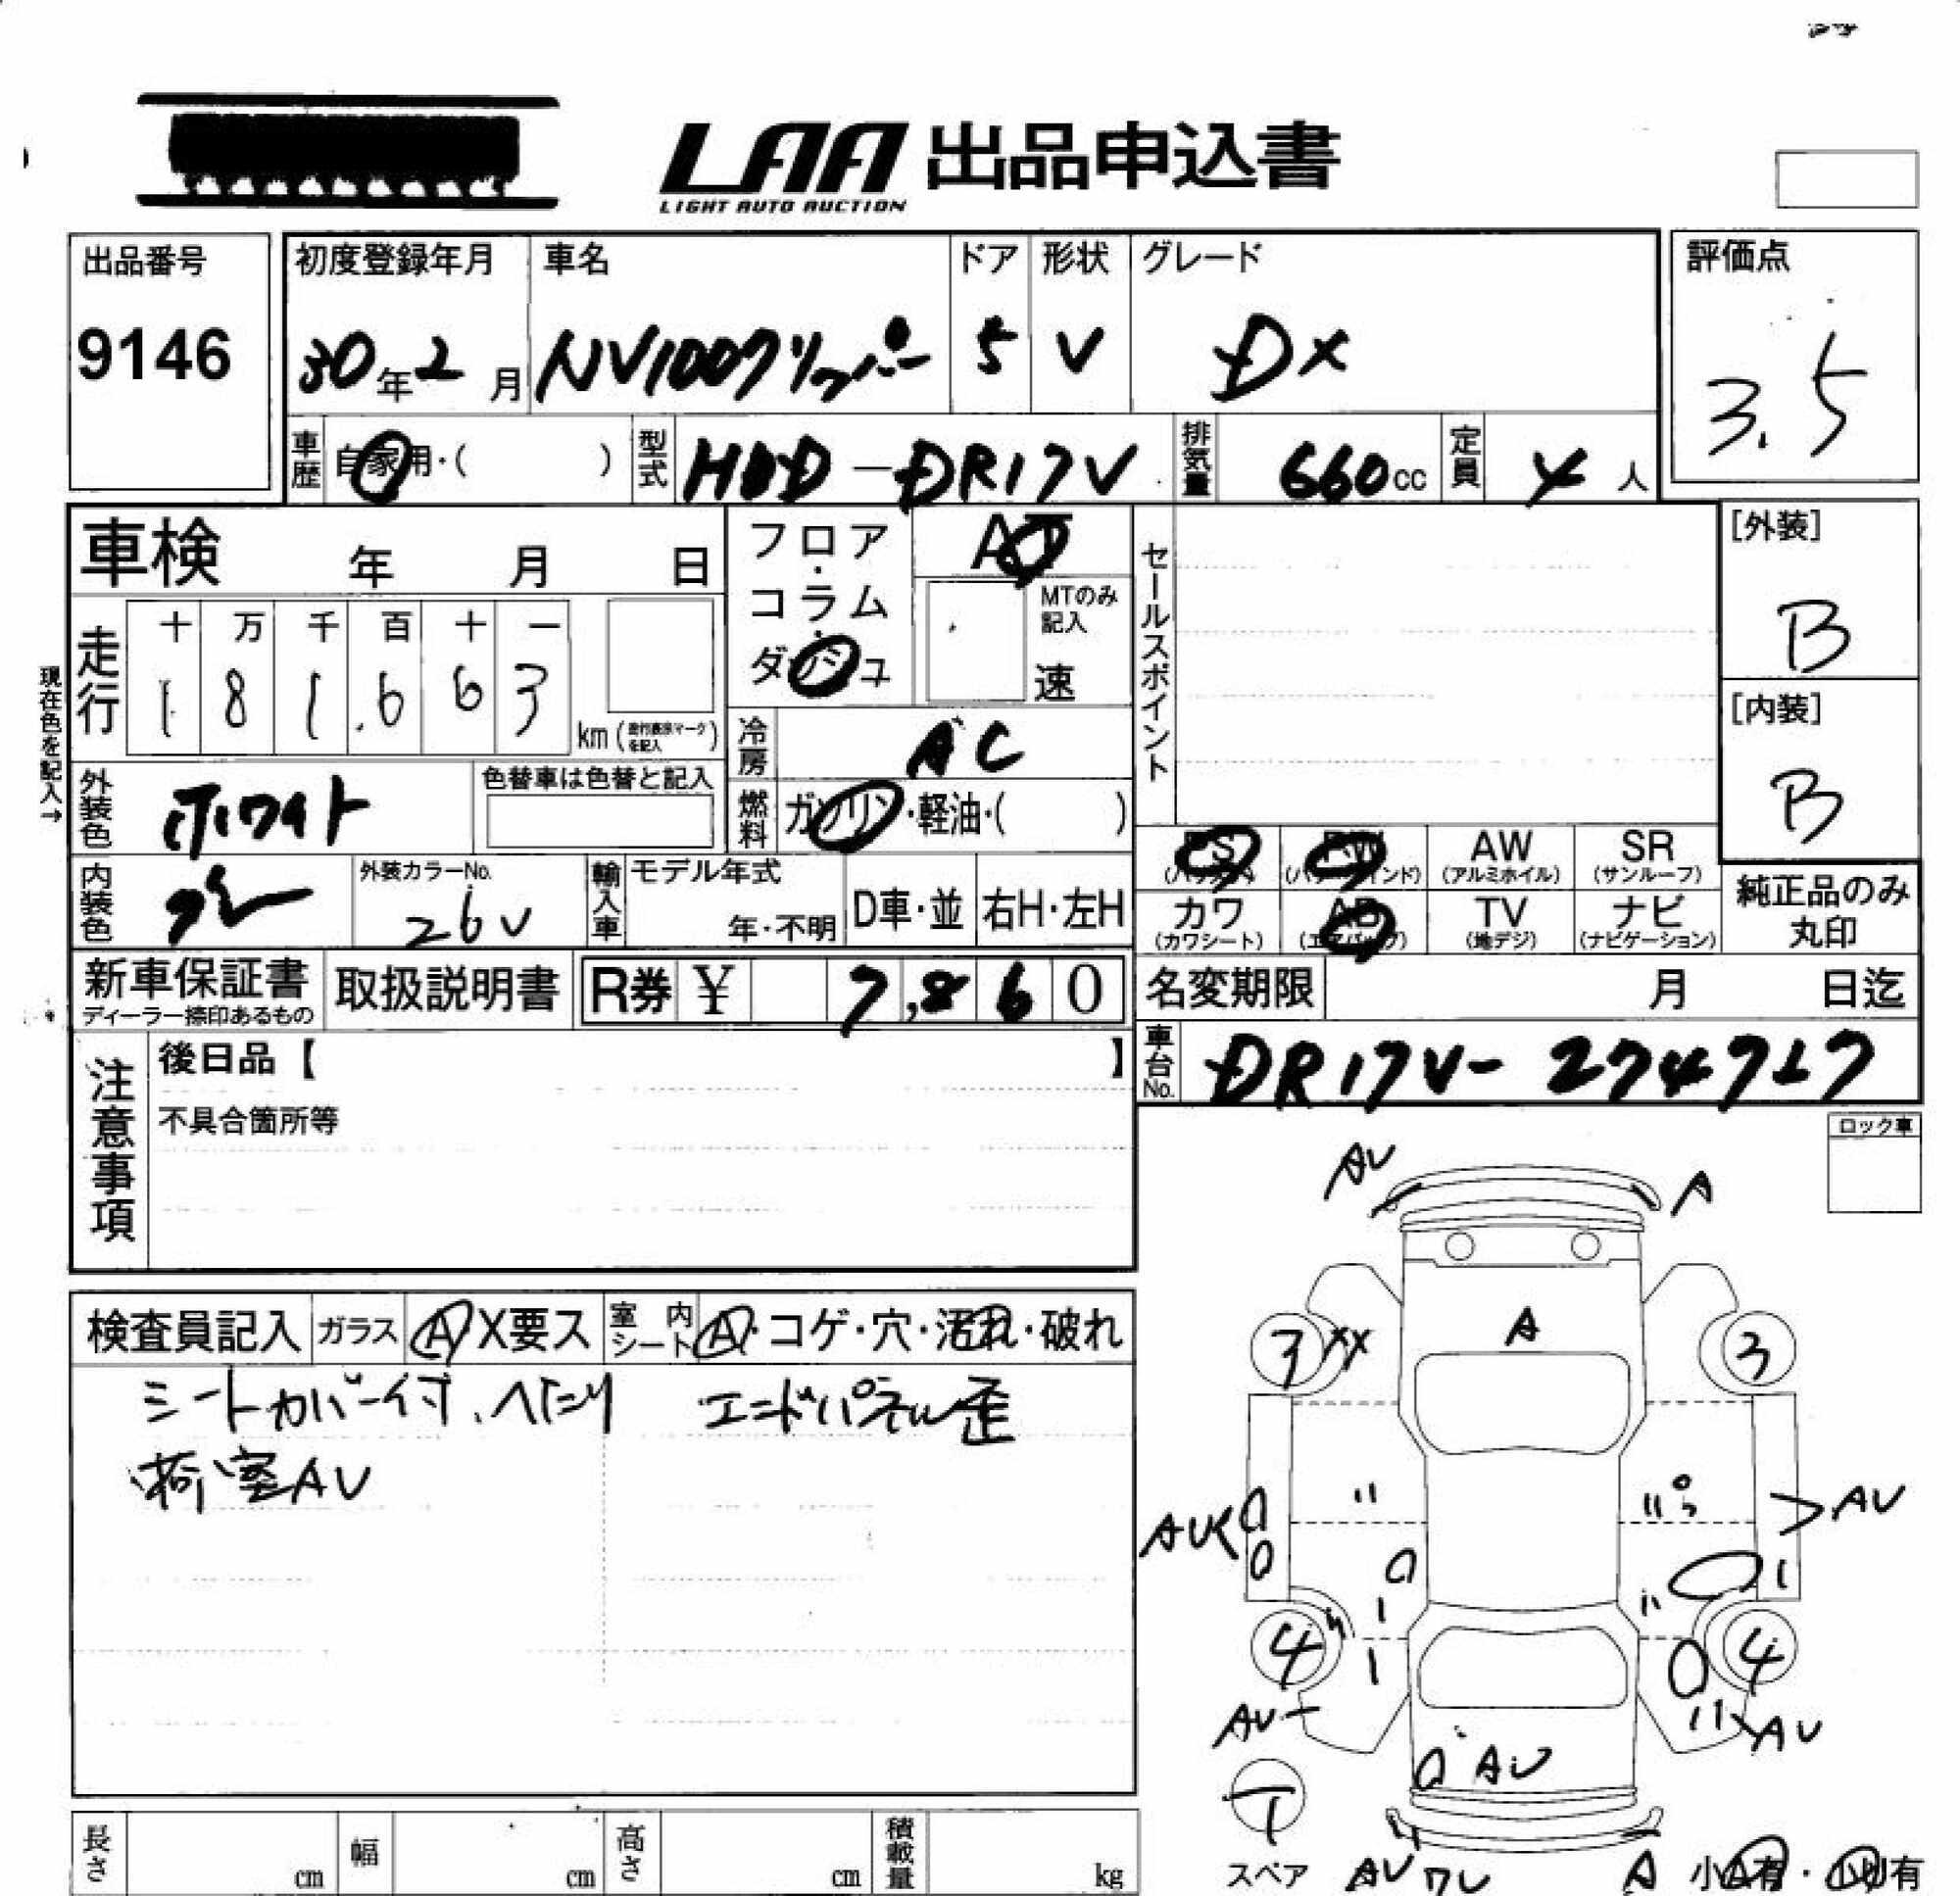 LAA 出品申込書
LIGHT AUTO AUCTION
出品番号
9146
初度登録年月
30年2月
車名
NV100クリッパー
ドア
5
形状
V
グレード
DX
評価点
3.5
車歴 自家用・( )
型式 HBD-DR17V
排気量 660cc
定員 4人
車検 年 月 日
走行
十 万 千 百 十 一
1 8 1,6 6 3
km(走行表示マークを記入)
現在色を記入→
フロア・コラム・ダッシュ
AT
MTのみ記入
速
冷房 AC
燃料 ガソリン・軽油・( )
外装色 ホワイト
色替車は色替と記入
内装色 グレー
外装カラーNo.
26U
輸入車
モデル年式
年・不明
D車・並
右H・左H
セールスポイント
[外装]
B
[内装]
B
PS (パワステ)
PW (パワーウインド)
AW (アルミホイル)
SR (サンルーフ)
カワ (カワシート)
AB (エアバック)
TV (地デジ)
ナビ (ナビゲーション)
純正品のみ丸印
新車保証書
ディーラー捺印あるもの
取扱説明書
R券 ¥ 7,860
名変期限 月 日迄
車台No. DR17V-274727
注意事項
後日品【 】
不具合箇所等
ロック車
検査員記入
ガラス A X要ス
室内シート A・コゲ・穴・汚れ・破れ
シートカバー付、へたり エンドパネル歪
荷室AU
AU
A
3 XX
A
3
AU
AU
4
4
AU
AU
AU
T
スペア
AU ワレ
A
小A有・小U有
長さ cm
幅 cm
高さ cm
積載量 kg